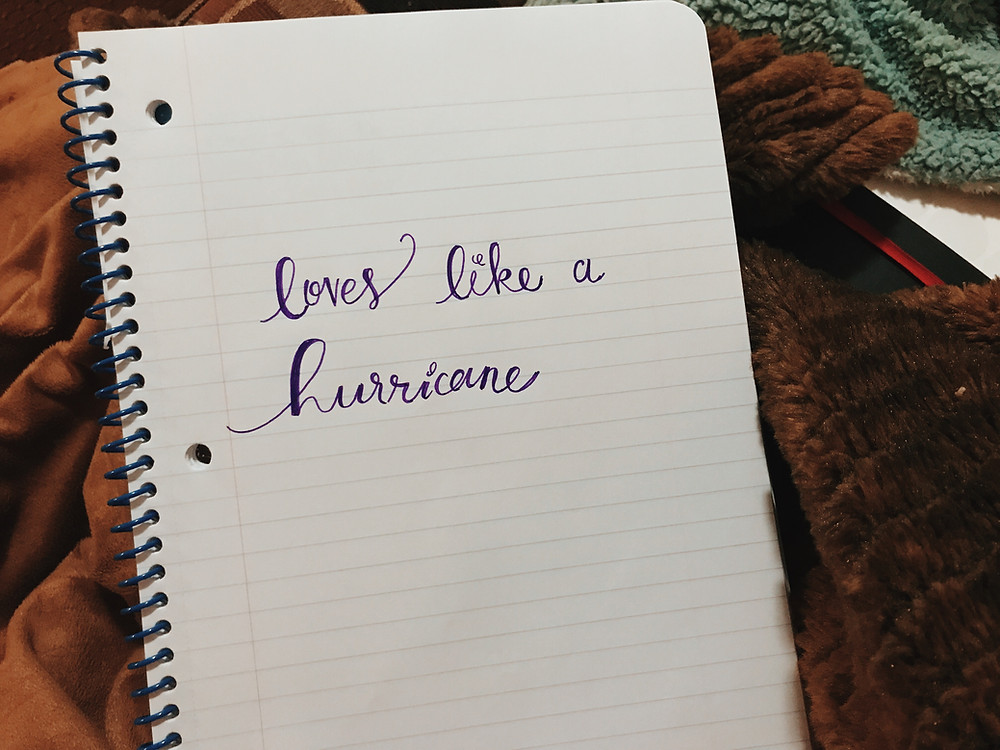 loves like a
hurricane